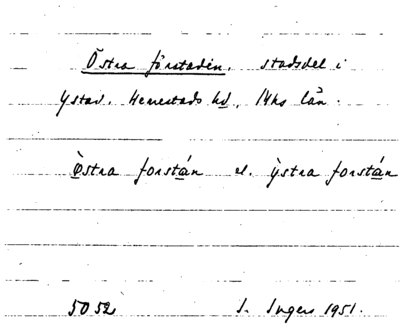 Östra förstaden, stadsdel i
Ystad. Herrestads hd, Mhs län.
Östra forstán el. ýstra forstán
5052 I. Ingers 1951.